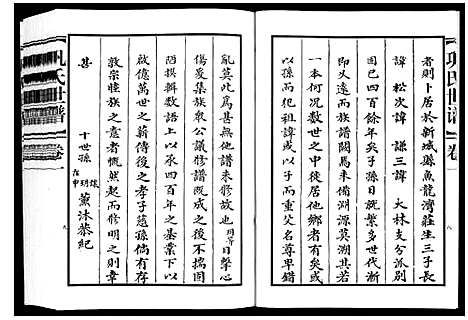 巩氏世谱
卷一
者則卜居於新城縣魚龍灣莊生三子長
諱松次諱謙三諱大林支分派別
固已四百餘年矣子孫日以繁多世代漸
以久遠而族譜闕焉未備溯源莫溯其
一本何况數世之中徒居他鄉者有矣或
以孫而犯祖諱或以少而名尊卑錯
亂莫此為甚無他譜未修故也玥等目擊心
傷爰集族衆公議修譜既成之後不揣固
陋撰輯數語上以承四百年之基業下以
啟億萬世之薪傳後之孝子慈孫倘有存
敦宗睦族之意者慨然起而修明之則幸
甚
十世孫 玥 薰沐恭紀
巩氏世谱
卷一